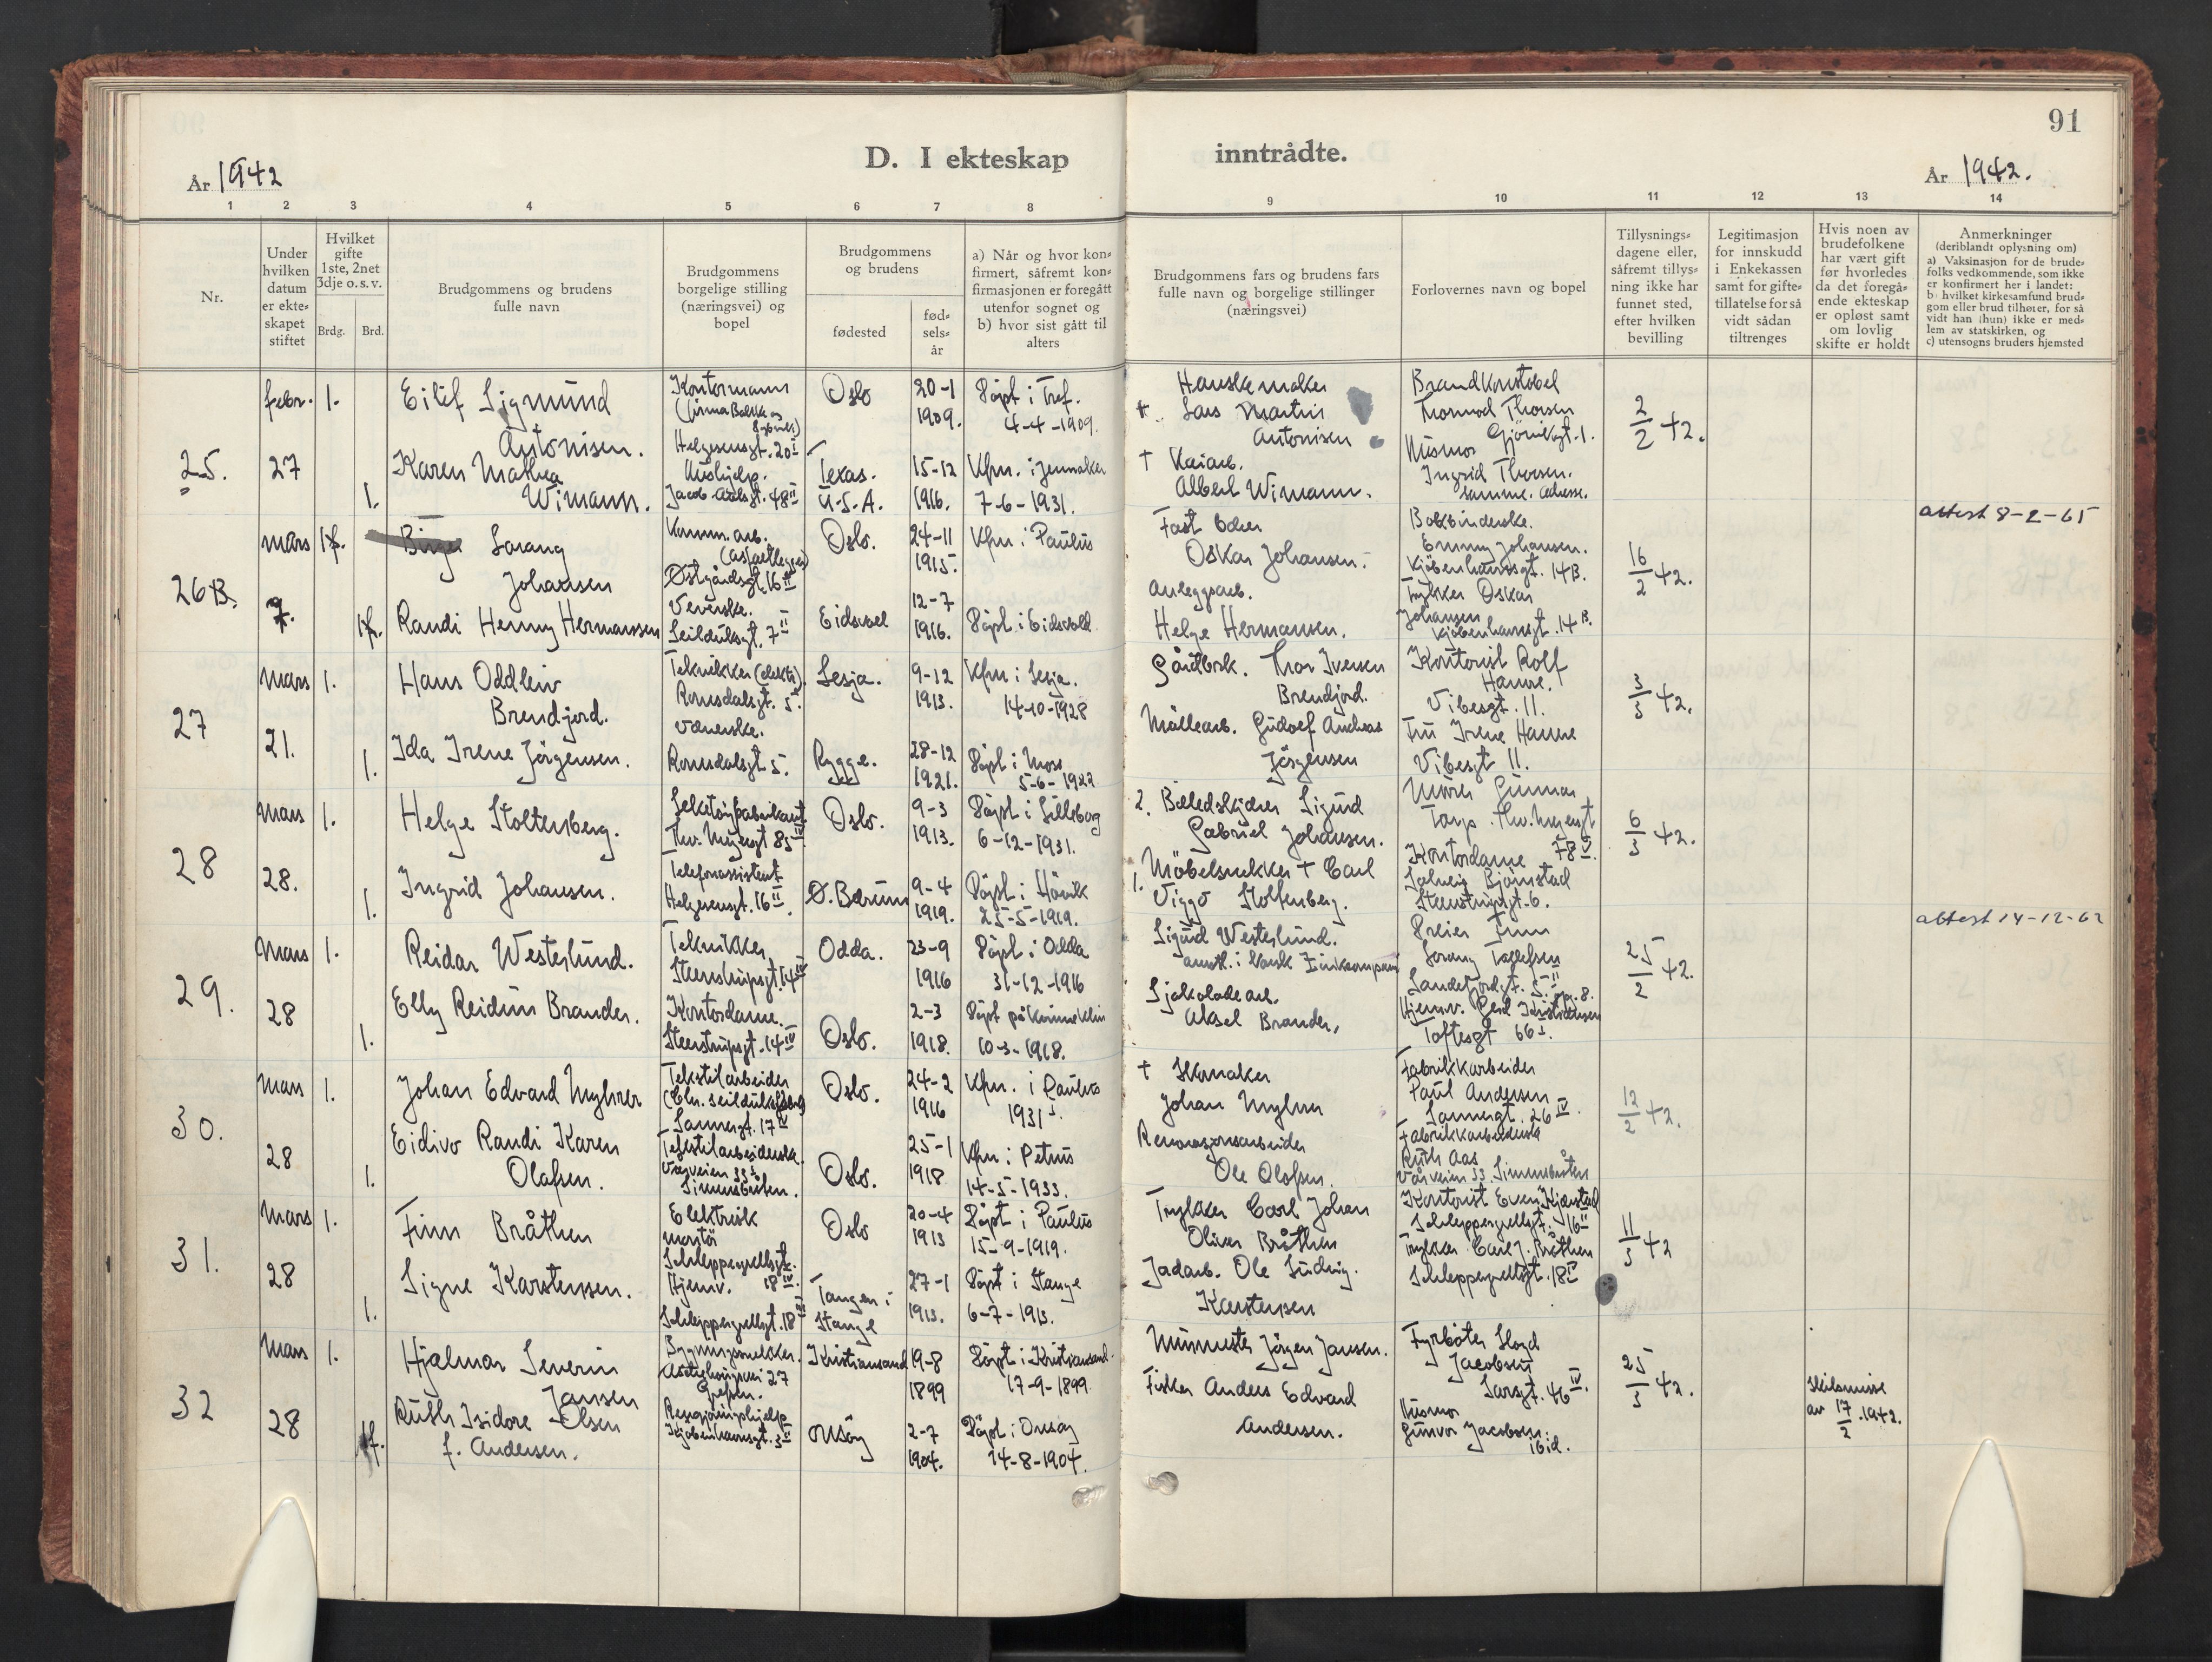 91
D. I ekteskap inntrådte.
År 1942
År 1942.
1 2 3 4 5 6 7 8 9 10 11 12 13 14
Nr.
Under hvilken datum er ekte-skapet stiftet
Hvilket gifte 1ste, 2net 3dje o. s. v.
Brdg. Brd.
Brudgommens og brudens fulle navn
Brudgommens borgelige stilling (næringsvei) og bopel
Brudgommens og brudens
fødested
fød-sels-år
a) Når og hvor kon-firmert, såfremt kon-firmasjonen er foregått utenfor sognet og b) hvor sist gått til alters
Brudgommens fars og brudens fars fulle navn og borgelige stillinger (næringsvei)
Forlovernes navn og bopel
Tillysnings-dagene eller, såfremt tillys-ning ikke har funnet sted, efter hvilken bevilling
Legitimasjon for innskudd i Enkekassen samt for gifte-tillatelse for så vidt sådan tiltrenges
Hvis noen av brudefolkene har vært gift før hvorledes da det foregå-ende ekteskap er opløst samt om lovlig skifte er holdt
Anmerkninger (deriblandt oplysning om) a) Vaksinasjon for de brude-folks vedkommende, som ikke er konfirmert her i landet: b) hvilket kirkesamfund brud-gom eller brud tilhører, for så vidt han (hun) ikke er med-lem av statskirken, og c) utensogns bruders hjemsted
25.
febr. 27
1.
Eilif Sigmund
Antonisen.
Kontormann
Helgesensgt. 20 I
Oslo
20-1
1909.
Døpt i Tref.
4-4-1909.
Hanskemaker
+. Lars Martin
Antonisen
Brandkonstabel
Tormod Thorsen
Gjøvikgt. 1.
2/2 42.
1.
Karen Mathea
Wimann.
Hushjelp.
Jacob Aalsgt. 48 II
Texas.
U.S.A.
15-12
1916.
Kfm. i Jennaker
7-6-1931.
† Kaiarb.
Albert Wimann.
Husmor
Ingrid Thorsen.
samme. adresse.
26 B.
mars 7.
Sarang
Johansen
Komm. arb.
Østgårdsgt. 16 II
Oslo.
24-11
1915.
Kfm. i Paulus
Oskar Johansen.
Bokbinderske.
Emmy Johansen.
Kjøbenhavnsgt. 14 B.
16/2 42.
attest 8-2-65
Randi Henny Hermansen
Veverske.
Seilduksgt. 7 II
Eidsvol
12-7
1916.
Døpt i Eidsvold
Anleggsarb.
Helge Hermansen.
Trykker Oskar
Johansen
Kjøbenhavnsgt. 14 B.
27
mars 21.
1.
Hans Oddleiv
Brendjord.
Teknikker (elektr.)
Romsdalsgt. 5.
Lesja.
9-12
1913.
Kfm i Lesja.
14-10-1928
Gårdbrk. Thor Iversen
Brendjord.
Kontorist Rolf
Hanre.
Vibesgt. 11.
3/3 42.
1.
Ida Irene Jørgensen.
Romsdalsgt 5.
Rygge.
28-12
1921.
Døpt i Moss
5-6-1922
Møllearb. Gudolf Andreas
Jørgensen
Fru Irene Hanre
Vibesgt 11.
28
mars 28.
1.
Helge Stoltenberg.
Thv. Meyersgt 85 IV
Oslo.
9-3
1913.
Døpt i Lilleborg
6-12-1931.
2. Billedskjærer Sigurd
Gabriel Johansen.
Murer Gunnar
Torp. Thv. Meyersgt
78 V.
6/3 42.
1.
Ingrid Johansen.
Telefonassistent
Helgesensgt. 16 II.
Ø. Bærum
9-4
1919.
Døpt i Høvik
25-5-1919.
1. Møbelsnekker † Carl
Viggo Stoltenberg.
Kontordame
Solveig Bjørnstad
Steenstrupsgt. 6.
29.
Mars 28
1.
Reidar Westerlund.
Teknikker
Steenstrupsgt. 14 IV
Odda.
23-9
1916
Døpt i Odda
31-12-1916
Sigurd Westerlund.
ansatt. i Norsk Zinkkompani
Dreier Finn
Sarang Tollefsen
Sandefjordgt. 5. II
25/2 42.
attest 14-12-62
1.
Elly Reidun Brander.
Kontordame.
Steenstrupsgt. 14 IV
Oslo.
2-3
1918.
Døpt på Kvinneklin
10-3-1918.
Sjokoladearb.
Aksel Brander.
Toftesgt 66 I.
30.
Mars 28
1.
Johan Edvard Myhrer
Tekstilarbeider
Sannergt. 17 IV
Oslo.
24-2
1916
Kfm. i Paulus
1931
† Skomaker
Johan Myhrer
Fabrikkarbeider
Paul Andersen
Sannergt. 26 IV.
12/2 42.
1.
Eidivo Randi Karen
Olafsen.
Tekstilarbeiderske
Vårveien 33
Simensbråten.
Oslo.
25-1
1918
Kfm i Petrus
14-5-1933.
Renovasjonsarbeider
Ole Olafsen.
Fabrikkarbeiderske
Ruth Aas
Vårveien 33 Simensbråten
31.
Mars 28
1.
Finn Bråthen
Elektrisk
montør
Schleppegrellsgt.
18 IV.
Oslo
20-4
1913
Døpt i Paulus
15-9-1919.
Trykker Carl Johan
Oliver Bråthen
Kontorist Even Kjærstad
Schleppegrellsgt. 16 II
11/3 42
1.
Signe Karstensen.
Hjemv.
Schleppegrellsgt. 18 IV
Tangen i
Stange
27-1
1913.
Døpt i Stange
6-7-1913.
Jordarb. Ole Ludvig.
Karstensen
Trykker Carl J. Bråthen
Schleppegrellsgt. 18 IV
32
Mars 28
1.
Hjalmar Severin
Jansen
Bygningssnekker.
Grefsen.
Kristiansand
19-8
1899
Døpt i Kristiansand.
17-9-1899.
Murmester Jørgen Jansen.
Fyrbøter Lloyd
Jacobsen
Sarsgt. 46 IV.
25/3 42.
Skilsmisse
av 17/2. 1942.
Ruth Isidore Olsen
f. Andersen.
Rengjøringshjelp
Kjøbenhavnsgt. 3 II
Onsøy
2-7
1904.
Døpt i Onsøy
14-8-1904.
Fisker Anders Edvard
Andersen.
Husmor
Gunvor Jacobsen.
ibid.